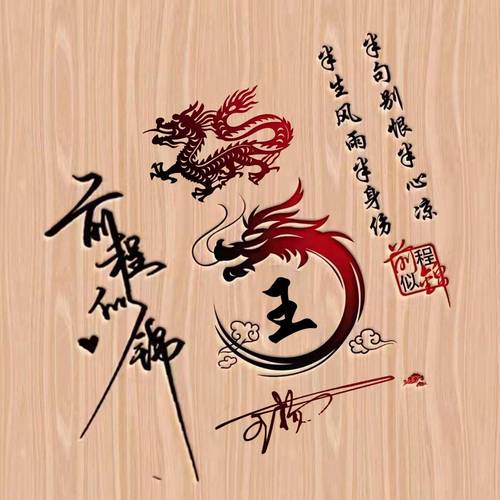 半句别恨半心凉
半生风雨半身伤
前程似锦
王
前程
似锦